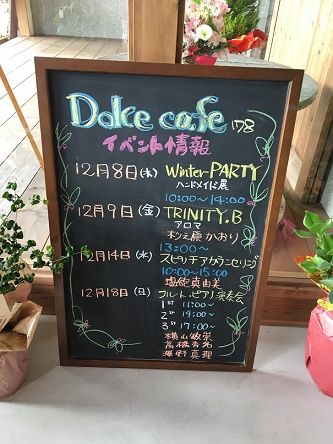 Dolce cafe 178
イベント情報
12月8日(木) Winter PARTY
ハンドメイド展
10:00～14:00
12月9日(金) TRINITY.B
アロマ
かおり
13:00～
12月14日(水) スピリチアカウンセリング
10:00～15:00
真由美
12月18日(日) フルート・ピアノ演奏会
1st 11:00～
2nd 14:00～
3rd 17:00～
横山
高橋
海野真理